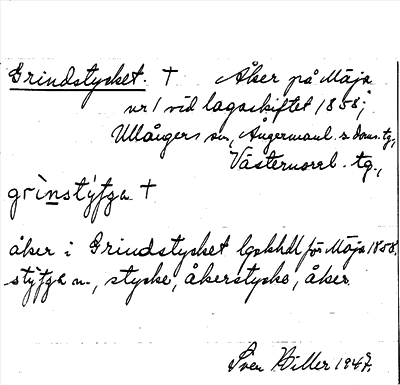 Grindstycket. † Åker på Mäja
nr 1 vid lagaskiftet 1858;
Ullångers sn, Ångermanl. s doms.tg,
Västernorrl. tg.,
grìnstýʃʃa †
åker i Grindstycket lgskhdl för Mäja 1858.
stýʃʃa n., stycke, åkerstycke, åker.
Sven Hiller 1947.